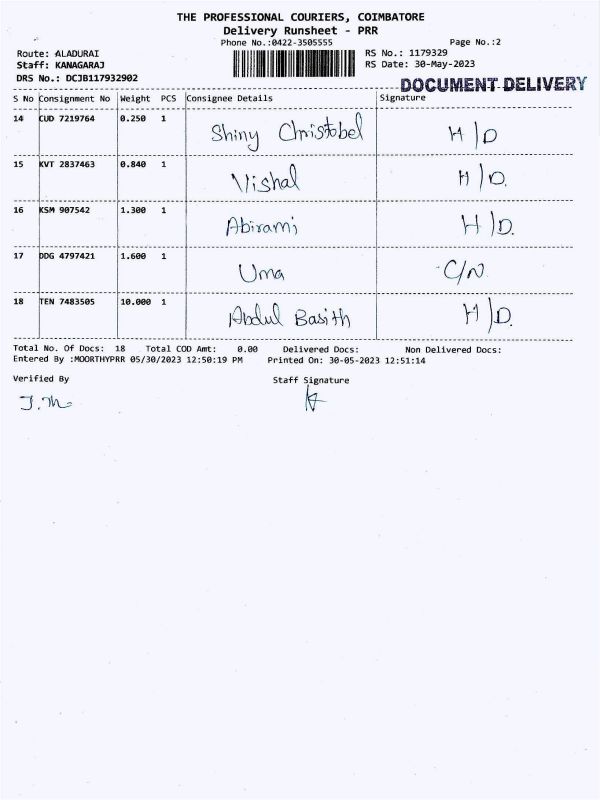 THE PROFESSIONAL COURIERS, COIMBATORE
Delivery Runsheet - PRR
Phone No.:0422-3505555 Page No.:2
Route: ALADURAI RS No.: 1179329
Staff: KANAGARAJ RS Date: 30-May-2023
DRS No.: DCJB117932902
DOCUMENT DELIVERY
S No Consignment No Weight PCS Consignee Details Signature
14 CUD 7219764 0.250 1 Shiny Christobel H/D
15 KVT 2837463 0.840 1 Vishal H/D.
16 KSM 907542 1.300 1 Abirami H/D.
17 DDG 4797421 1.600 1 Uma C/N
18 TEN 7483505 10.000 1 Abdul Basith H/D.
Total No. Of Docs: 18 Total COD Amt: 0.00 Delivered Docs: Non Delivered Docs:
Entered By :MOORTHYPRR 05/30/2023 12:50:19 PM Printed On: 30-05-2023 12:51:14
Verified By Staff Signature